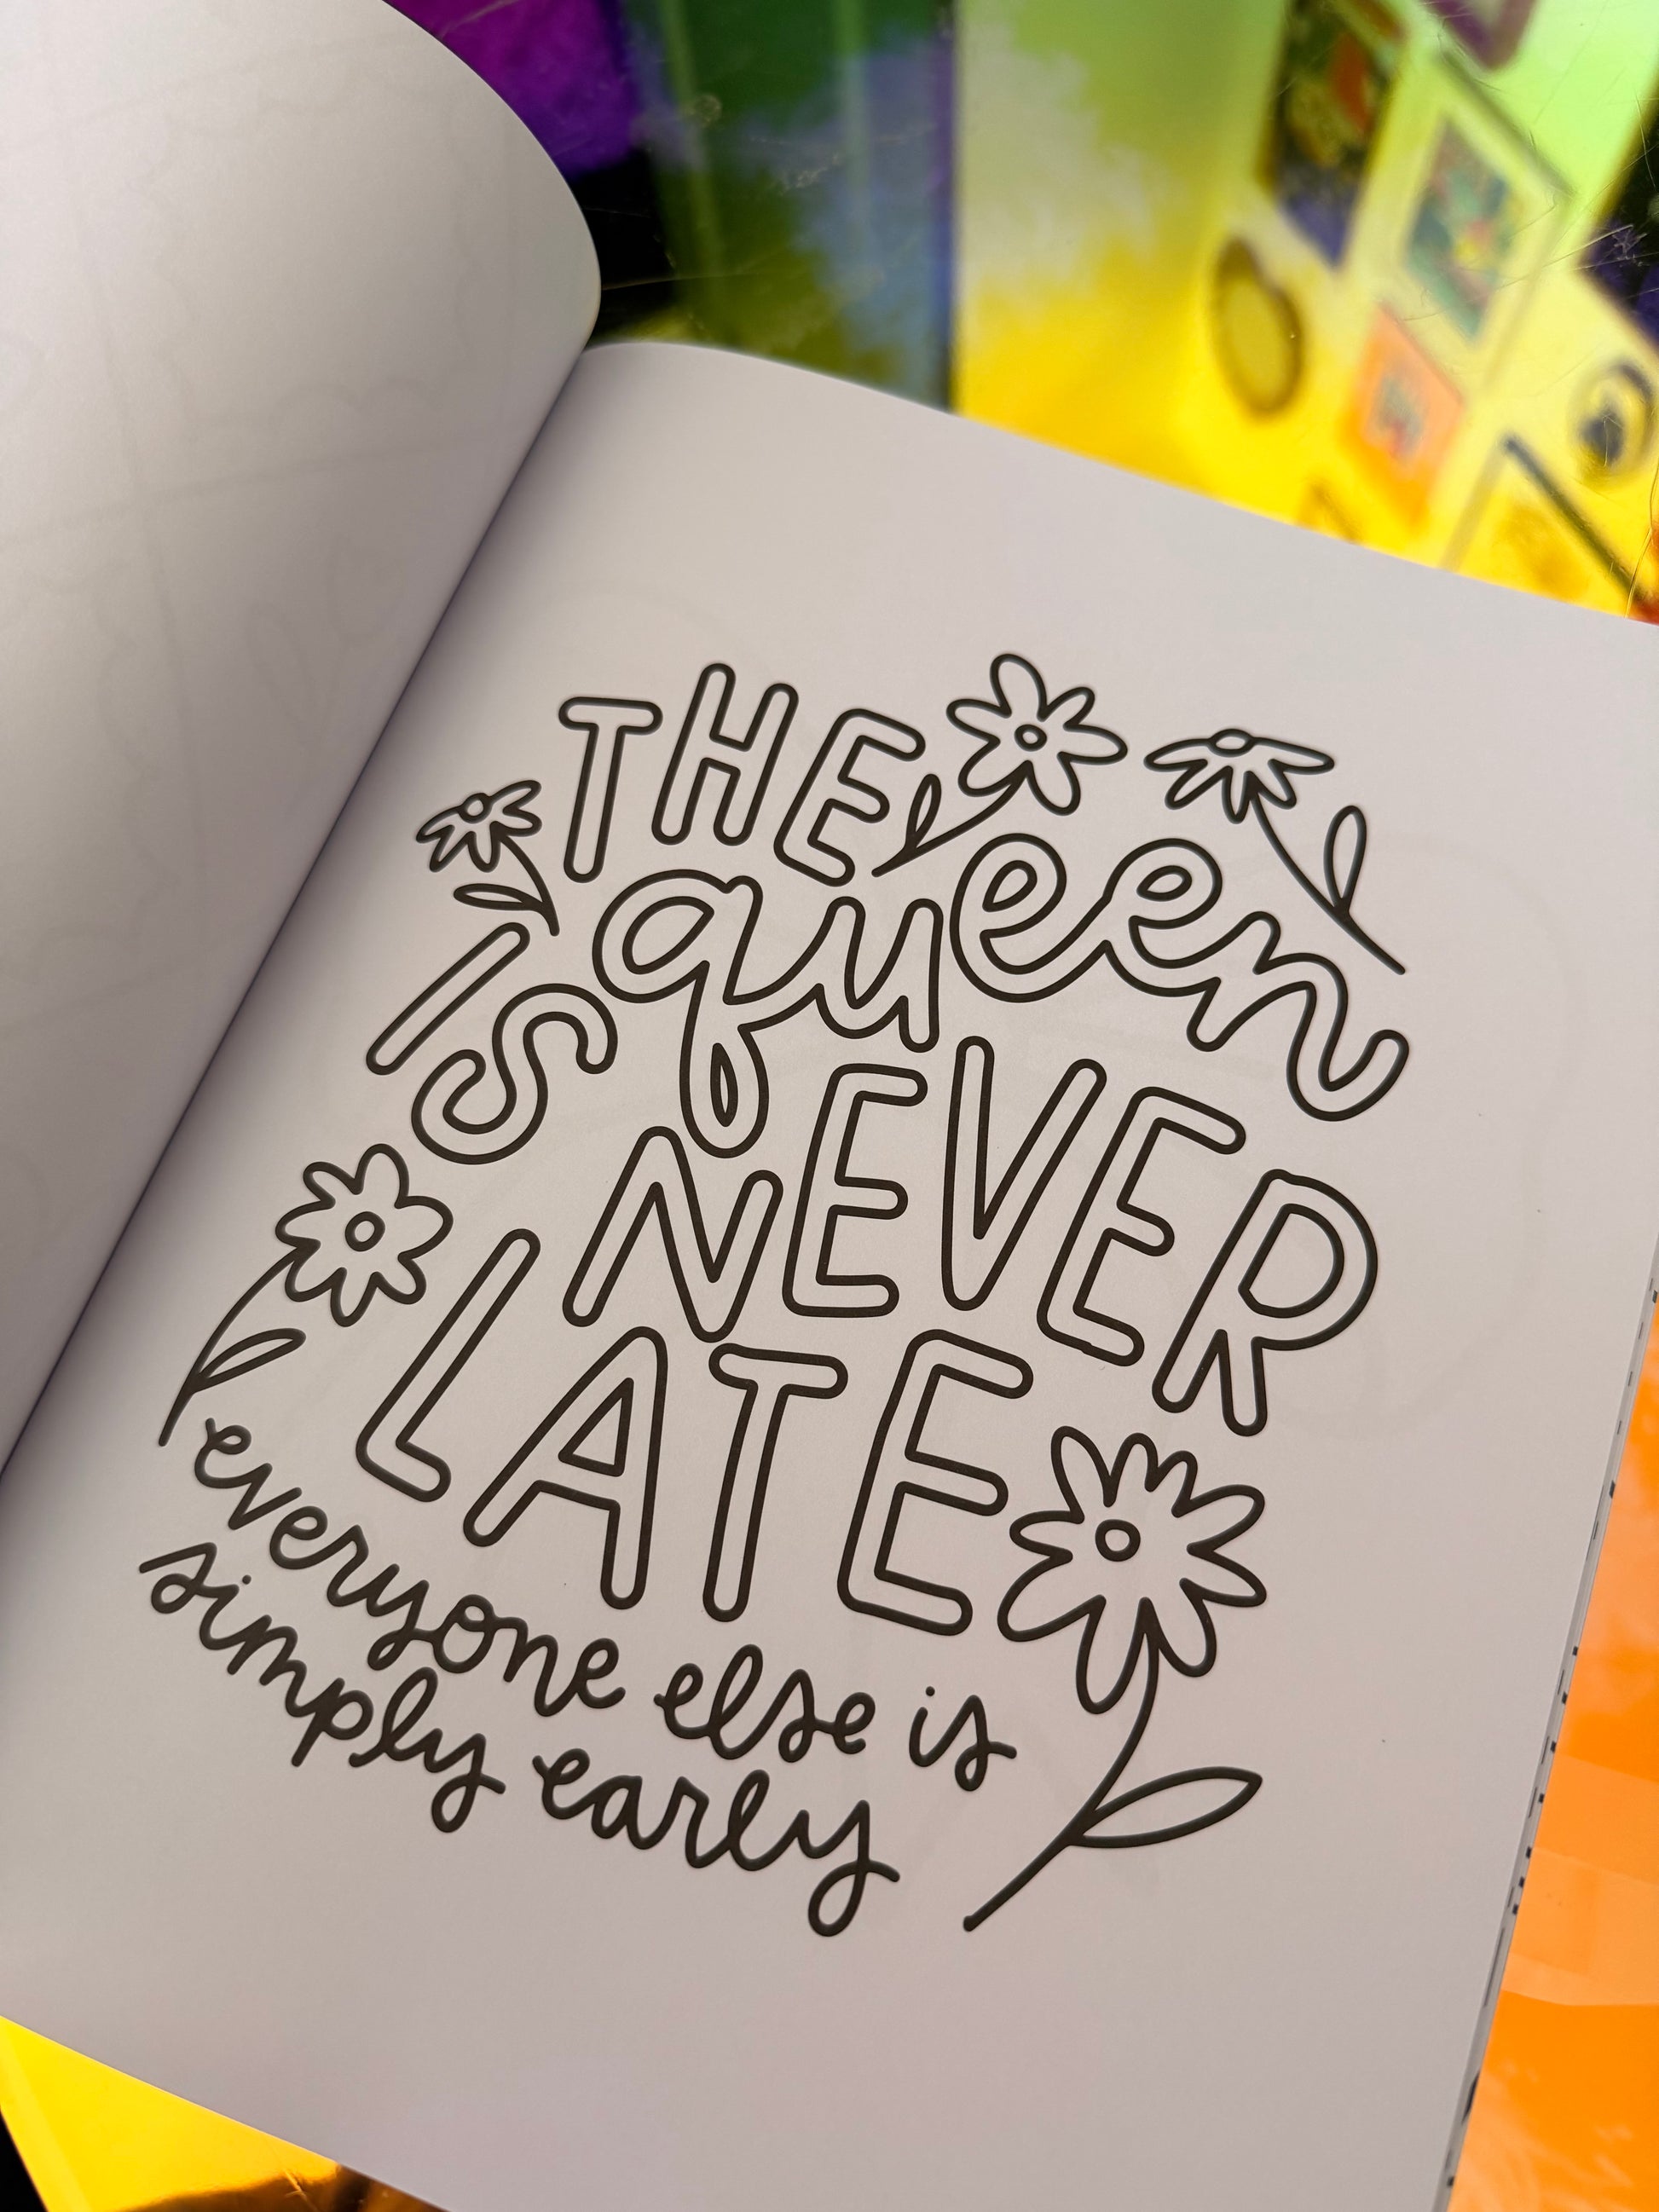 THE
queen
IS
NEVER
LATE
everyone else is
simply early